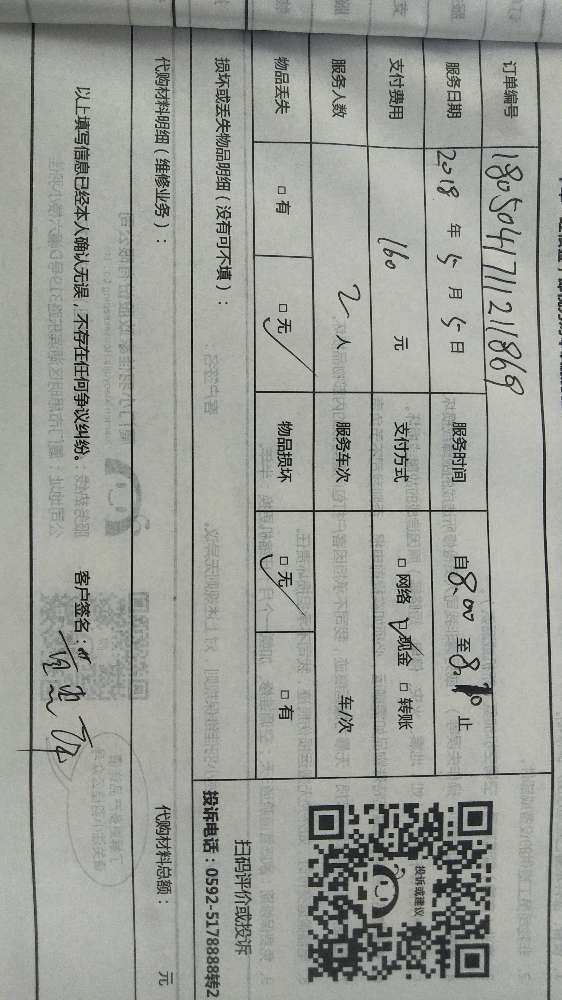 订单编号 180504171121869
服务日期 2018 年 5 月 5 日 服务时间 自 8.00 至 止
支付费用 160 元 支付方式 □ 网络 ☑ 现金 □ 转账
服务人数 2 人 服务车次 车/次
物品丢失 □ 有 □ 无 ✓ 物品损坏 □ 无 ✓ □ 有
损坏或丢失物品明细（没有可不填）：
投诉或建议
扫码评价或投诉
投诉电话：0592-5178888转2
代购材料明细（维修业务）： 代购材料总额： 元
以上填写信息已经本人确认无误，不存在任何争议纠纷。 客户签名：